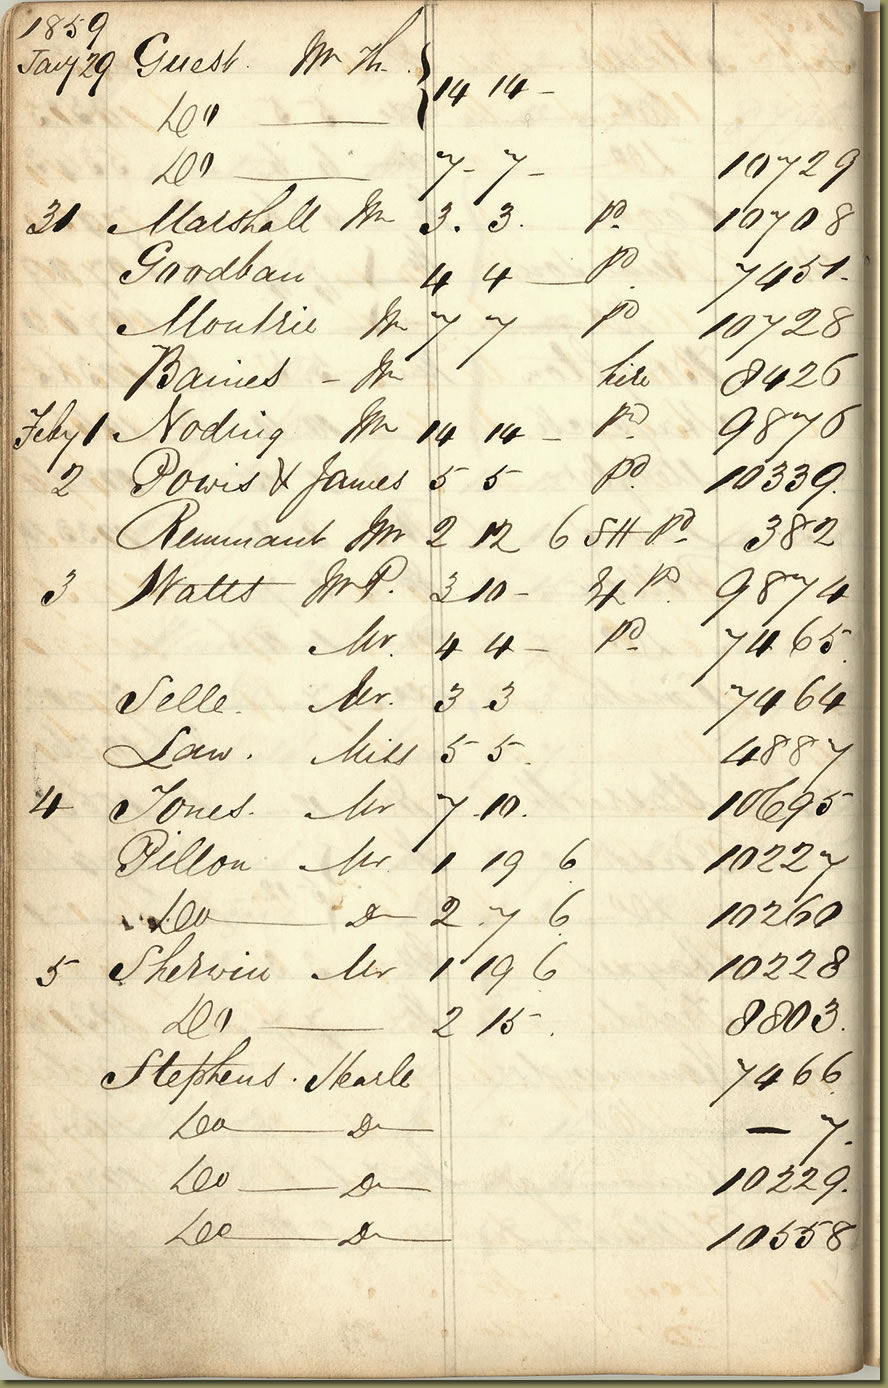 1859
Jany 29 Guest. Mr Th. } 14 14 -
Do ——
Do —— 7 - 7 - 10729
31 Marshall Mr 3. 3. Pd. 10708
Goodban 4 4 — Pd. 7451.
Moutrie Mr 7 7 Pd 10728
Baines - Mr hire 8426
Feby 1 Noding Mr 14 14 - Pd. 9876
2 Powis & James 5 5 Pd. 10339.
Remnant Mr 2 12 6 SH Pd. 382
3 Watts Mr P. 3 10 - Pd. 9874
Mr. 4 4 - Pd. 7465.
Selle. Mr. 3 3 7464
Law. Miss 5 5. 4887
4 Jones. Mr 7 .10. 10695
Pillon Mr. 1 19 6 10227
Do —— Do 2 .7 6 10260
5 Sherwin Mr 1 19 6 10228
Do —— 2 15 . 8803.
Stephens. Searle 7466
Do —— Do —— — 7.
Do —— Do —— 10229.
Do —— Do —— 10558